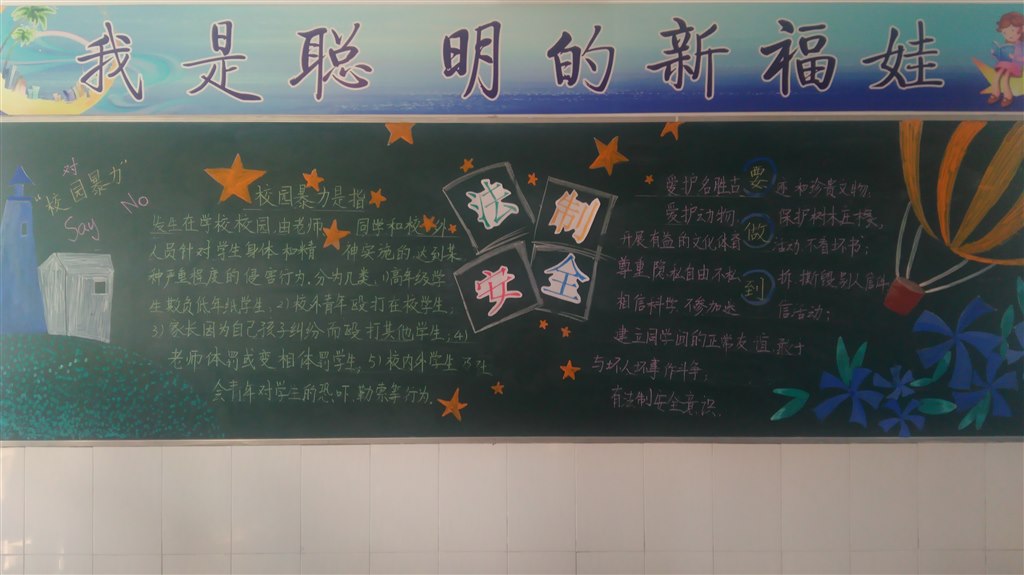 我是聪明的新福娃
对
"校园暴力"
Say No
校园暴力是指
发生在学校校园,由老师 同学和校外
人员针对学生身体和精 神实施的达到某
种严重程度的侵害行为,分为几类,1)高年级学
生欺负低年级学生,2)校外青年殴打在校学生,
3)家长因为自己孩子纠纷而殴打其他学生,4)
老师体罚或变相体罚学生,5)校内外学生
青年对学生的恐吓,勒索等行为.
法制
安全
要
做
到
爱护名胜古 和珍贵文物,
爱护动物, 保护树木庄稼,
开展有益的文化体育 活动,不看坏书;
尊重隐私自由不私 拆,撕毁别人信件
相信科学不参加迷 信活动;
建立同学间的正常友谊,敢于
与坏人坏事作斗争;
有法制安全意识.